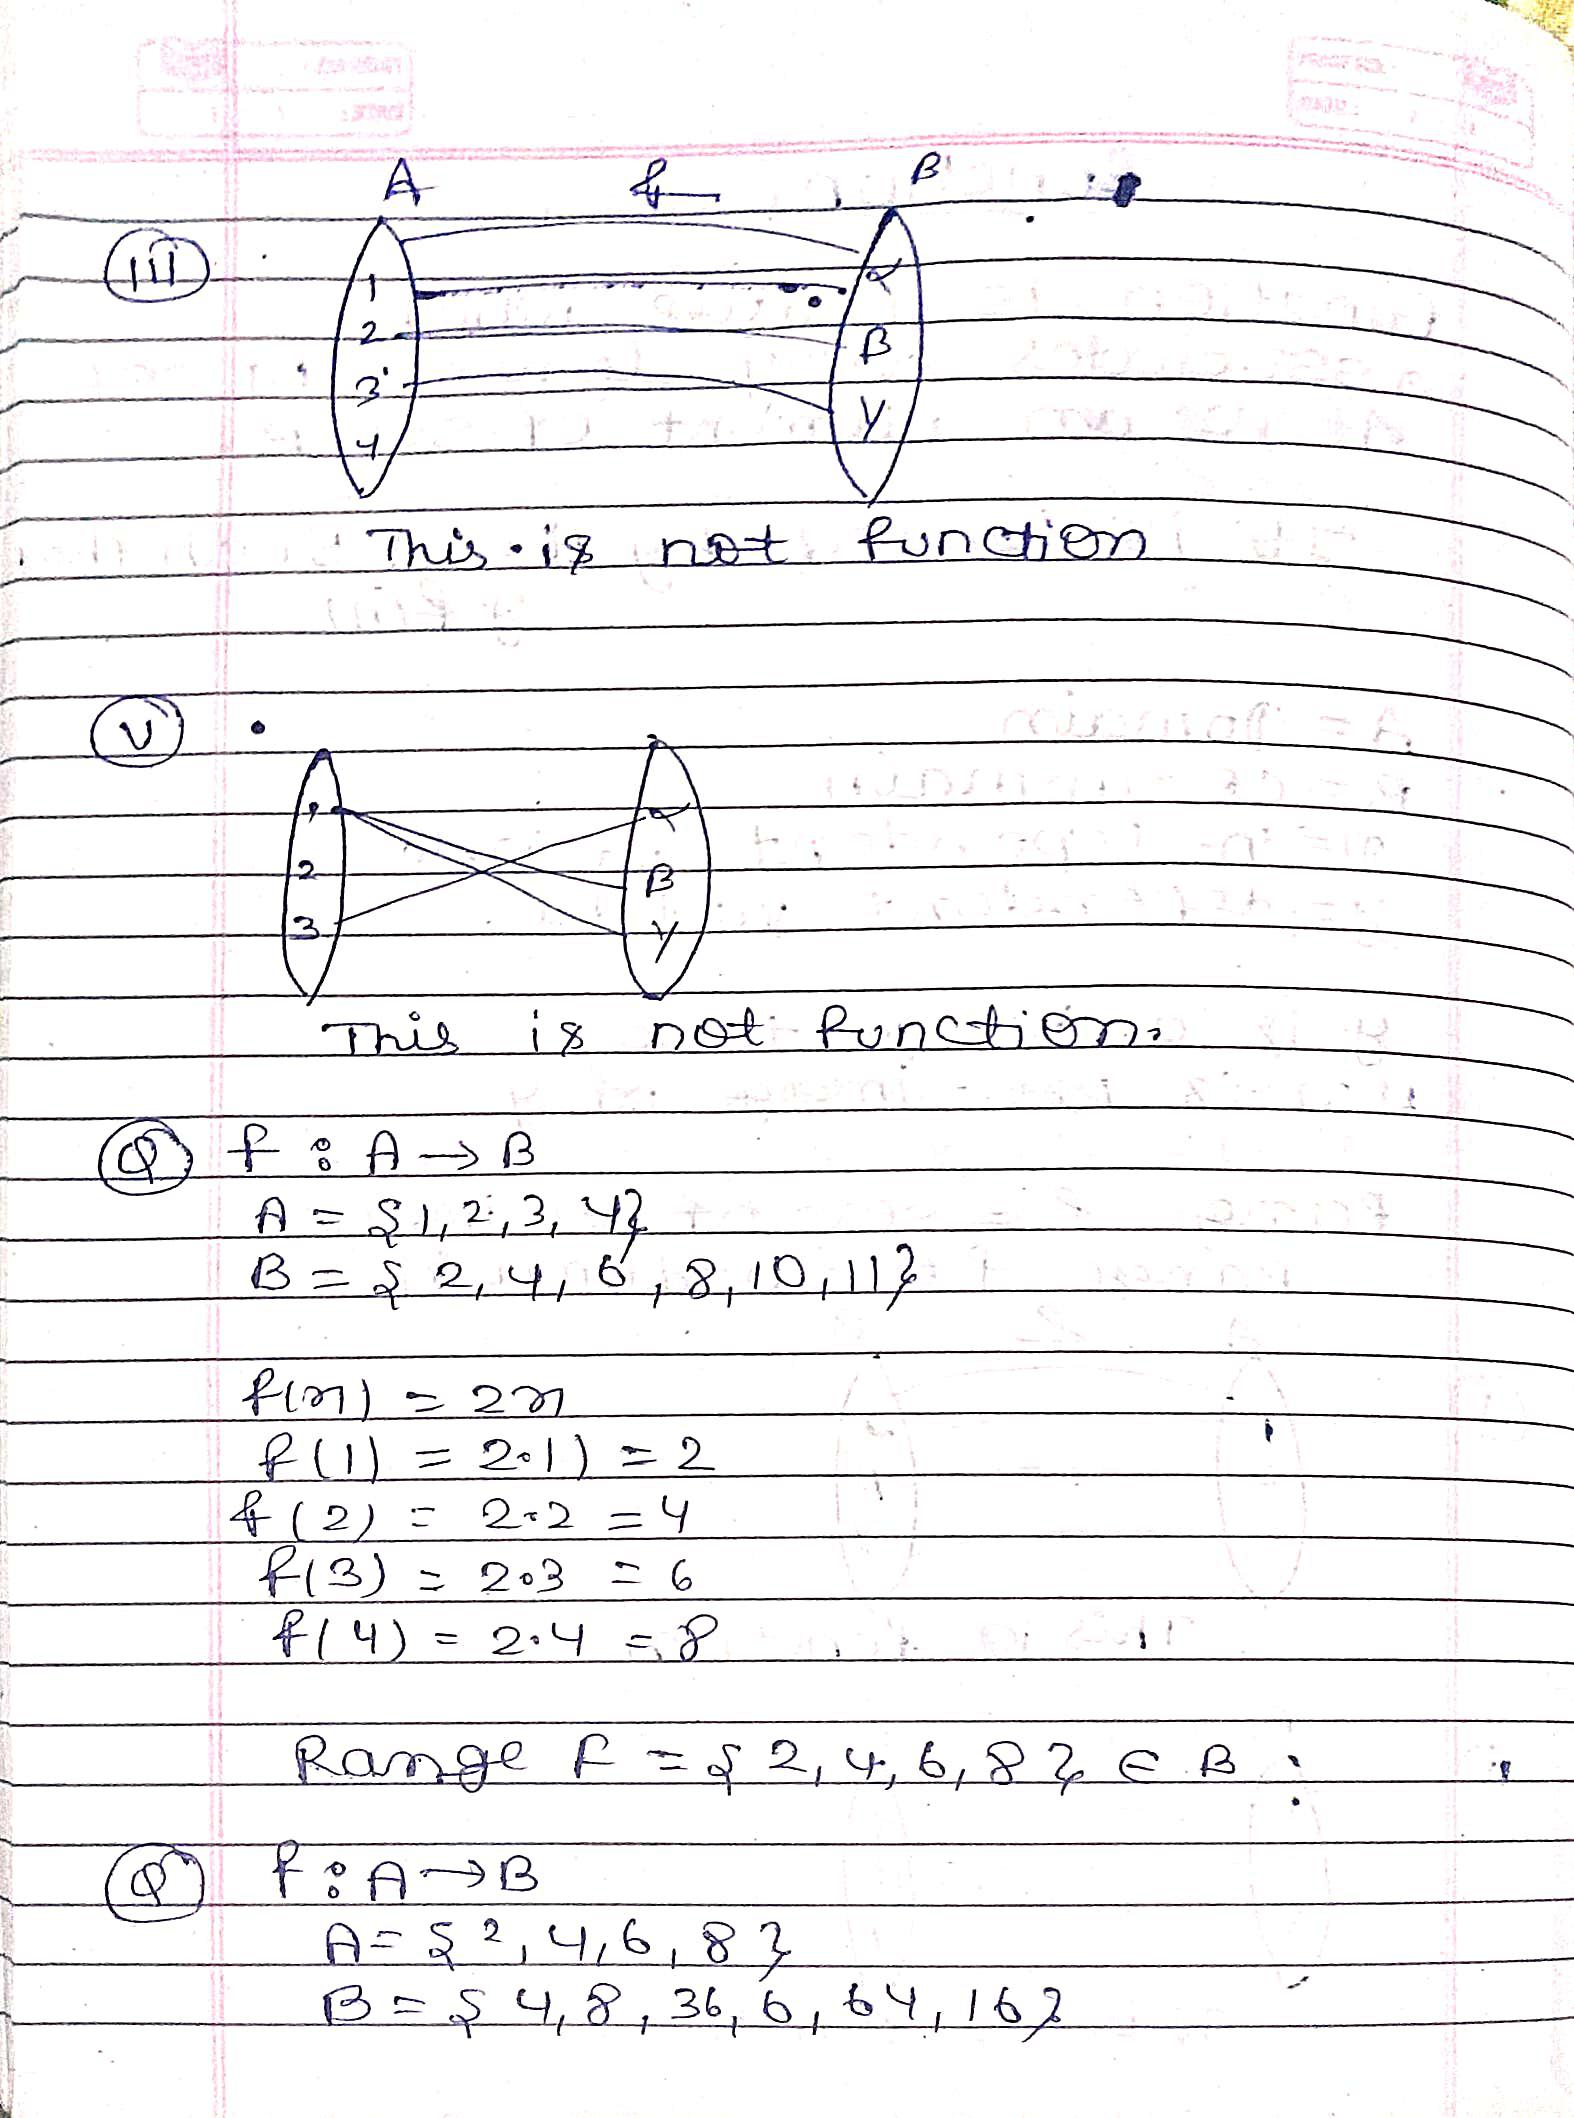 A f B
(iii)
1 α
2 β
3 γ
4
This is not function
(v)
1 α
2 β
3 γ
This is not function.
(Q) f : A → B
A = {1, 2, 3, 4}
B = {2, 4, 6, 8, 10, 11}
f(n) = 2n
f(1) = 2.1) = 2
f(2) = 2.2 = 4
f(3) = 2.3 = 6
f(4) = 2.4 = 8
Range f = {2, 4, 6, 8} ∈ B
(Q) f : A → B
A = {2, 4, 6, 8}
B = {4, 8, 36, 6, 64, 16}